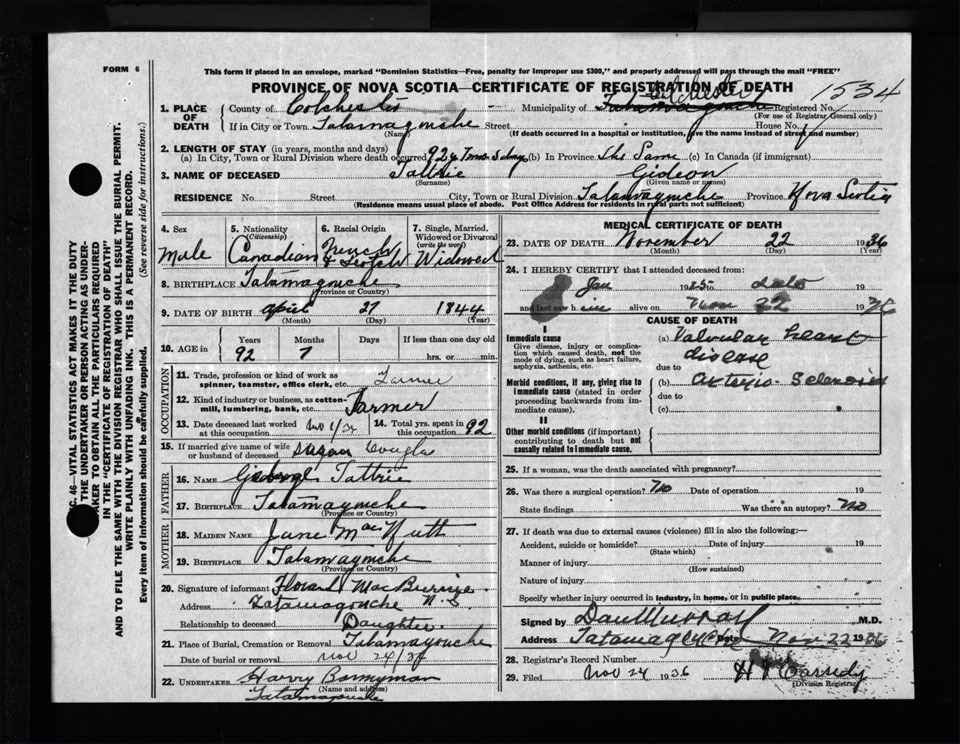 FORM 6
This form if placed in an envelope, marked "Dominion Statistics—Free, penalty for improper use $300," and properly addressed will pass through the mail "FREE"
PROVINCE OF NOVA SCOTIA—CERTIFICATE OF REGISTRATION OF DEATH
1. PLACE OF DEATH
County of Colchester Municipality of Colchester Tatamagouche Registered No. 1534
(For use of Registrar General only)
If in City or Town Tatamagouche Street House No.
(Name) (If death occurred in a hospital or institution, give the name instead of street and number)
2. LENGTH OF STAY (in years, months and days)
(a) In City, Town or Rural Division where death occurred 92y (b) In Province the Same (c) In Canada (if immigrant)
3. NAME OF DECEASED Tattrie Gideon
(Surname) (Given name or names)
RESIDENCE No. Street City, Town or Rural Division Tatamagouche Province Nova Scotia
(Residence means usual place of abode. Post Office Address for residents in rural parts not sufficient)
4. Sex
Male
5. Nationality
(Citizenship)
Canadian
6. Racial Origin
French & Scotch
7. Single, Married, Widowed or Divorced
(write the word)
Widowed
8. BIRTHPLACE Tatamagouche
(Province or Country)
9. DATE OF BIRTH April 27 1844
(Month) (Day) (Year)
10. AGE in
Years Months Days If less than one day old
92 7 hrs. or min.
OCCUPATION
11. Trade, profession or kind of work as spinner, teamster, office clerk, etc. Farmer
12. Kind of industry or business, as cotton-mill, lumbering, bank, etc. Farmer
13. Date deceased last worked at this occupation Nov 1/36
14. Total yrs. spent in this occupation 92
15. If married give name of wife or husband of deceased Susan Douglas
FATHER
16. Name George Tattrie
17. Birthplace Tatamagouche
(Province or Country)
MOTHER
18. Maiden Name Jane MacNutt
19. Birthplace Tatamagouche
(Province or Country)
20. Signature of informant MacBurnie
Address Tatamagouche N.S.
Relationship to deceased Daughter
21. Place of Burial, Cremation or Removal Tatamagouche
Date of burial or removal Nov 24/36
22. UNDERTAKER Harry Bonnyman
(Name and address)
Tatamagouche
MEDICAL CERTIFICATE OF DEATH
23. DATE OF DEATH November 22 1936
(Month) (Day) (Year)
24. I HEREBY CERTIFY that I attended deceased from:
Jan 1925 date 19
and last saw him alive on Nov 22 1936
CAUSE OF DEATH
I
Immediate cause
Give disease, injury or complication which caused death, not the mode of dying, such as heart failure, asphyxia, asthenia, etc.
(a) Valvular heart disease
due to
Morbid conditions, if any, giving rise to immediate cause (stated in order proceeding backwards from immediate cause).
(b) Arterio-Sclerosis
due to
(c)
II
Other morbid conditions (if important) contributing to death but not causally related to immediate cause.
25. If a woman, was the death associated with pregnancy?
26. Was there a surgical operation? No Date of operation 19
State findings Was there an autopsy? No
27. If death was due to external causes (violence) fill in also the following:—
Accident, suicide or homicide? Date of injury 19
(State which)
Manner of injury
(How sustained)
Nature of injury
Specify whether injury occurred in industry, in home, or in public place.
Signed by Dan Murray M.D.
Address Tatamagouche Date Nov 22 1936
28. Registrar's Record Number
29. Filed Nov 24 1936
(Division Registrar)
C. 46—VITAL STATISTICS ACT MAKES IT THE DUTY
THE UNDERTAKER OR PERSON ACTING AS UNDER-
AKER TO OBTAIN ALL THE PARTICULARS REQUIRED
IN THE "CERTIFICATE OF REGISTRATION OF DEATH"
AND TO FILE THE SAME WITH THE DIVISION REGISTRAR WHO SHALL ISSUE THE BURIAL PERMIT.
WRITE PLAINLY WITH UNFADING INK. THIS IS A PERMANENT RECORD.
Every item of information should be carefully supplied. (See reverse side for instructions.)